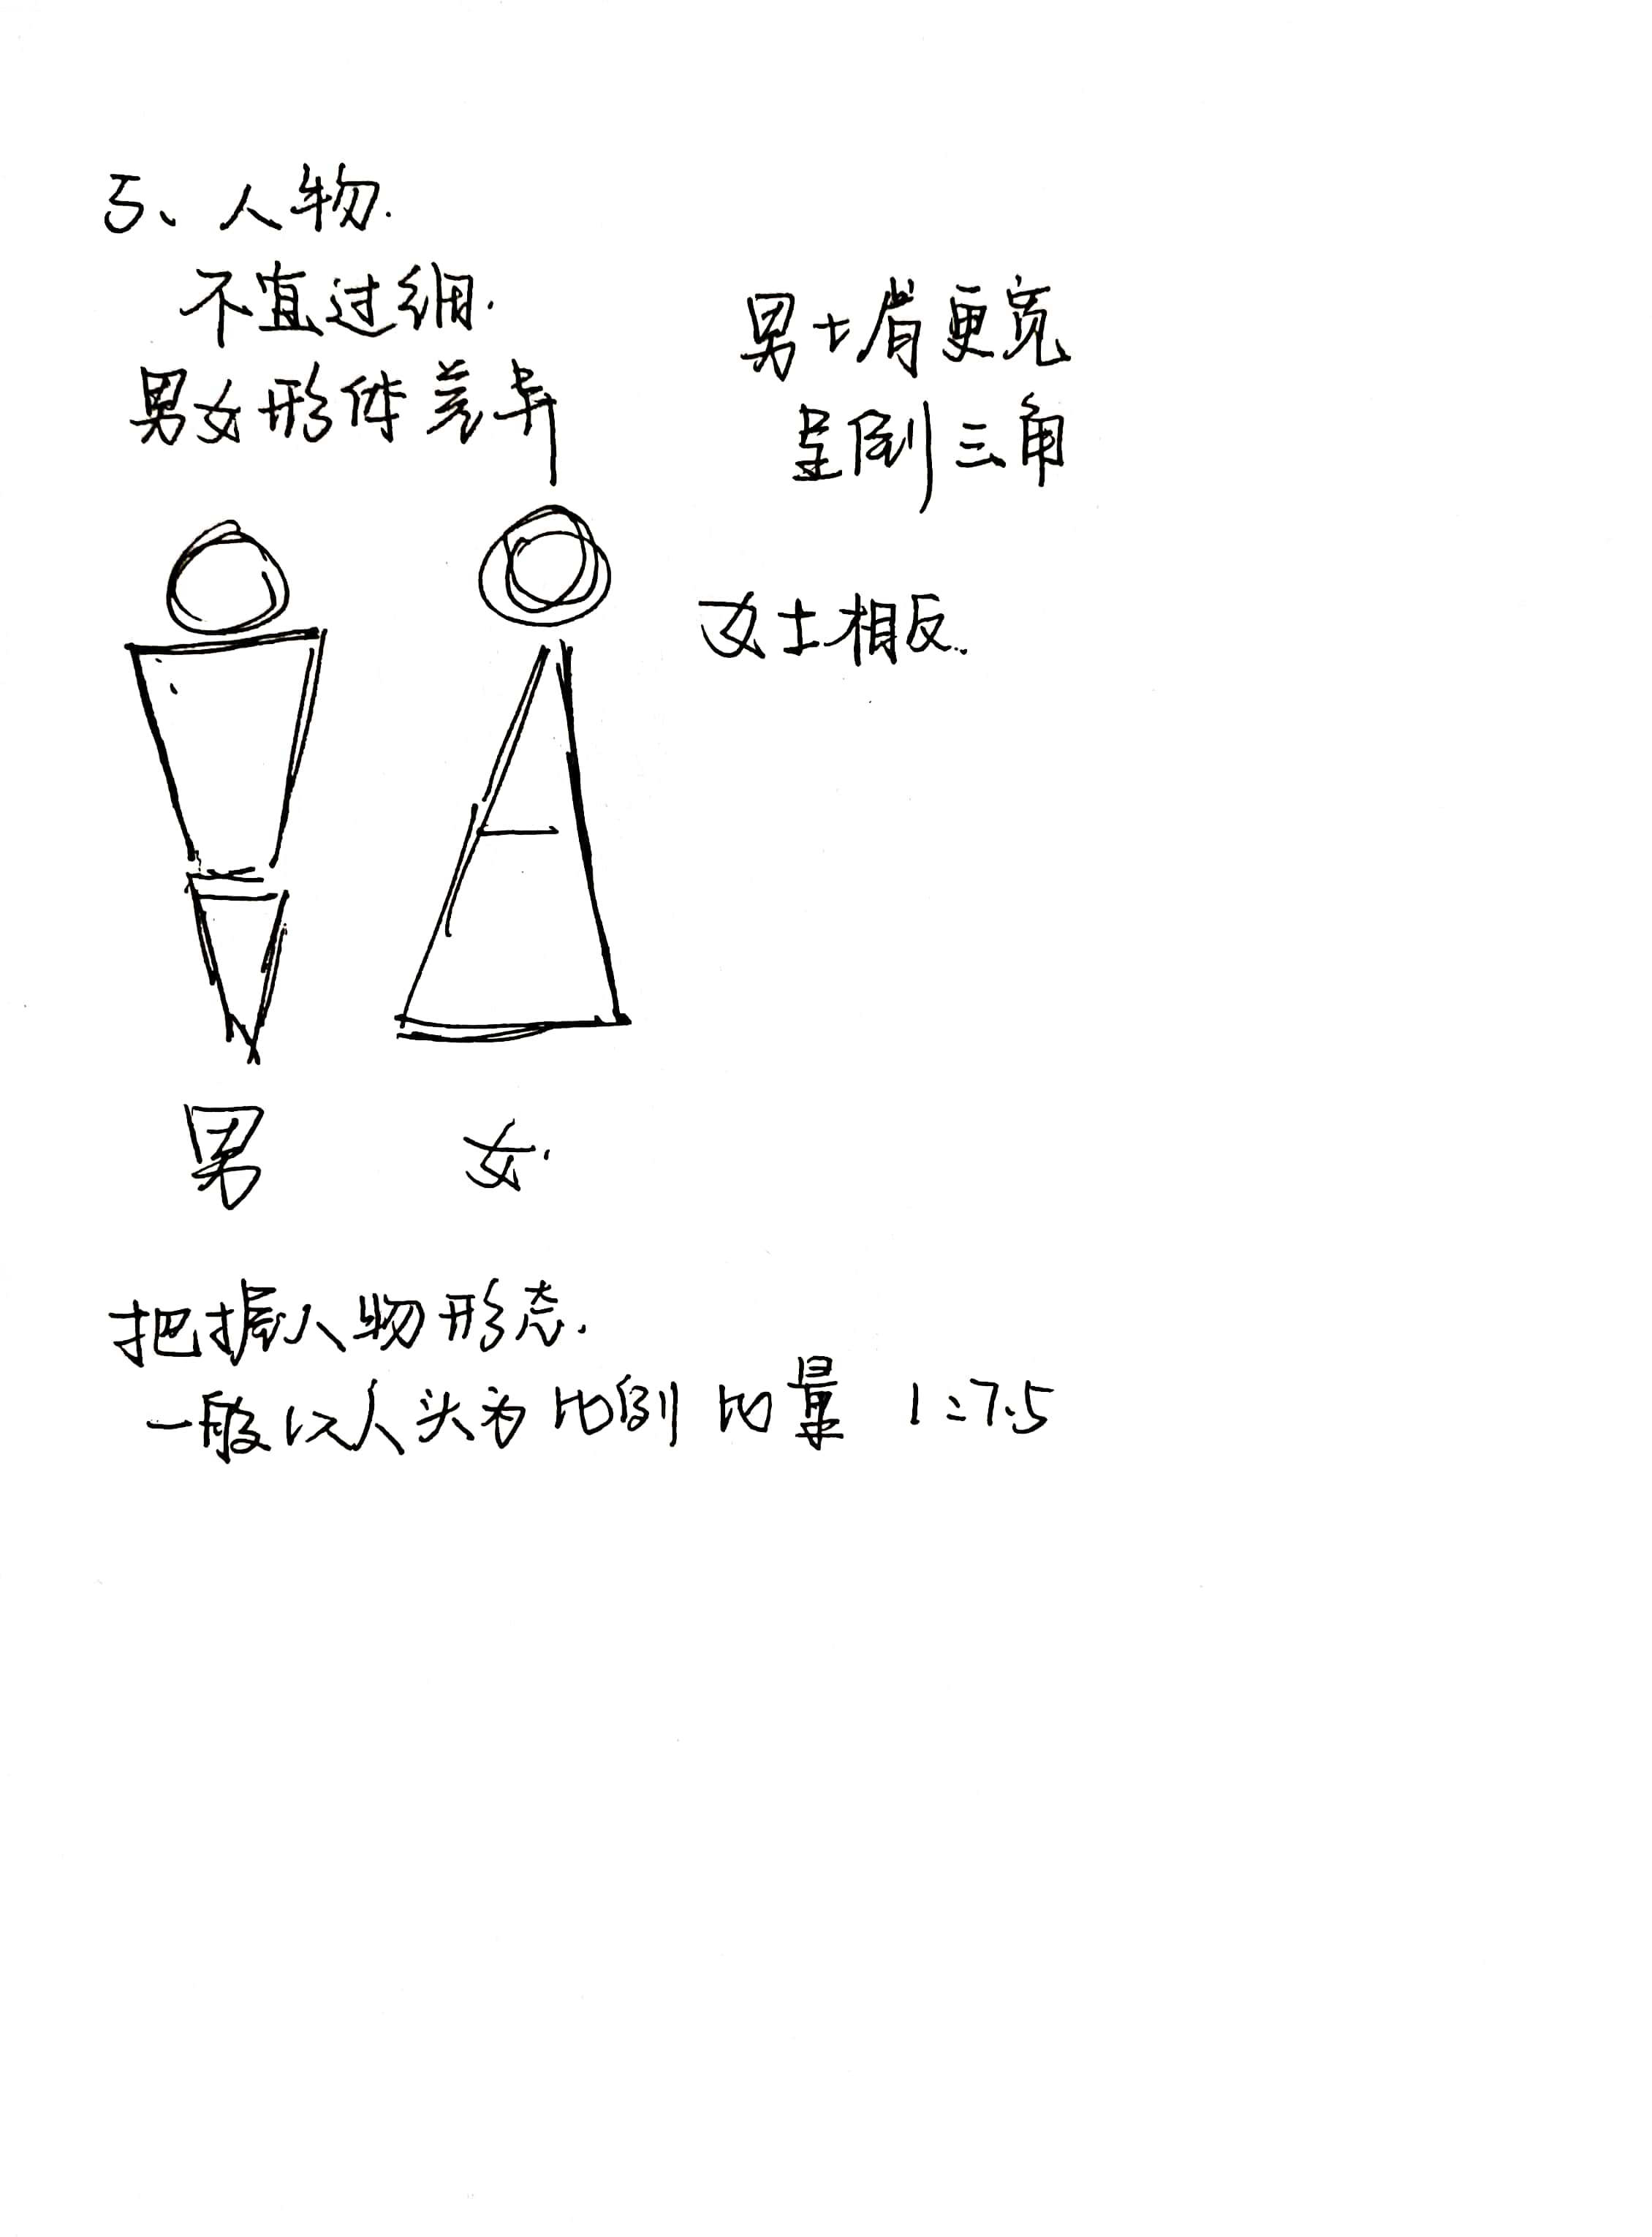 5、人物.
不宜过细.
男女形体差异
男士肩更宽
呈倒三角
女士相反.
男 女.
把握人物形态.
一般以人头为比例 比量 1:7.5